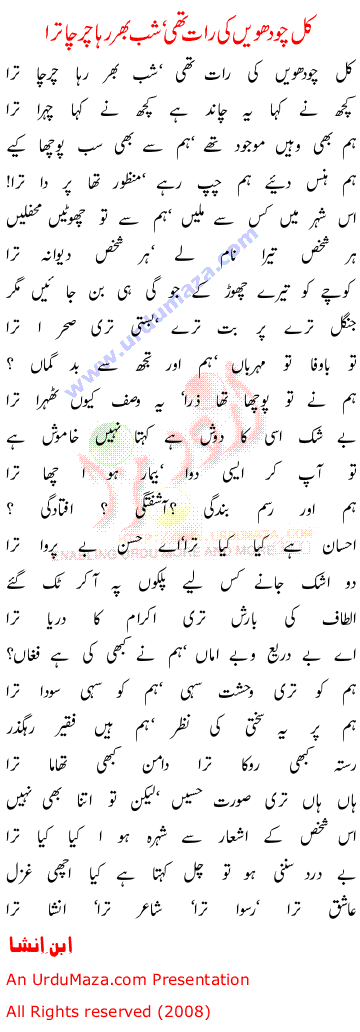 کل چودھویں کی رات تھی، شب بھر رہا چرچا ترا
کل چودھویں کی رات تھی، شب بھر رہا چرچا ترا
کچھ نے کہا یہ چاند ہے کچھ نے کہا چہرا ترا
ہم بھی وہیں موجود تھے، ہم سے بھی سب پوچھا کیے
ہم ہنس دیئے ہم چپ رہے، منظور تھا پردا ترا!
اس شہر میں کس سے ملیں، ہم سے تو چھوٹیں محفلیں
ہر شخص تیرا نام لے، ہر شخص دیوانہ ترا
کوچے کو تیرے چھوڑ کے جوگی ہی بن جائیں مگر
جنگل ترے پربت ترے، بستی تری صحرا ترا
تو باوفا تو مہرباں، ہم اور تجھ سے بدگماں ؟
ہم نے تو پوچھا تھا ذرا، یہ وصف کیوں ٹھہرا ترا
بے شک اسی کا دوش ہے کہتا نہیں خاموش ہے
تو آپ کر ایسی دوا، بیمار ہو اچھا ترا
ہم اور رسم بندگی ؟ آشفتگی ؟ افتادگی ؟
احسان ہے کیا کیا ترا، اے حسن بے پروا ترا
دو اشک جانے کس لیے پلکوں پہ آ کر ٹک گئے
الطاف کی بارش تری اکرام کا دریا ترا
اے بے دریغ و بے اماں، ہم نے کبھی کی ہے فغاں؟
ہم کو تری وحشت سہی، ہم کو سہی سودا ترا
ہم پر یہ سختی کی نظر، ہم ہیں فقیر رہگذر
رستہ کبھی روکا ترا دامن کبھی تھاما ترا
ہاں ہاں تری صورت حسیں، لیکن تو اتنا بھی نہیں
اس شخص کے اشعار سے شہرہ ہوا کیا کیا ترا
بے درد سننی ہو تو چل کہتا ہے کیا اچھی غزل
عاشق ترا، رسوا ترا، شاعر ترا، انشا ترا
ابن انشا
An UrduMaza.com Presentation
All Rights reserved (2008)
www.urdumaza.com